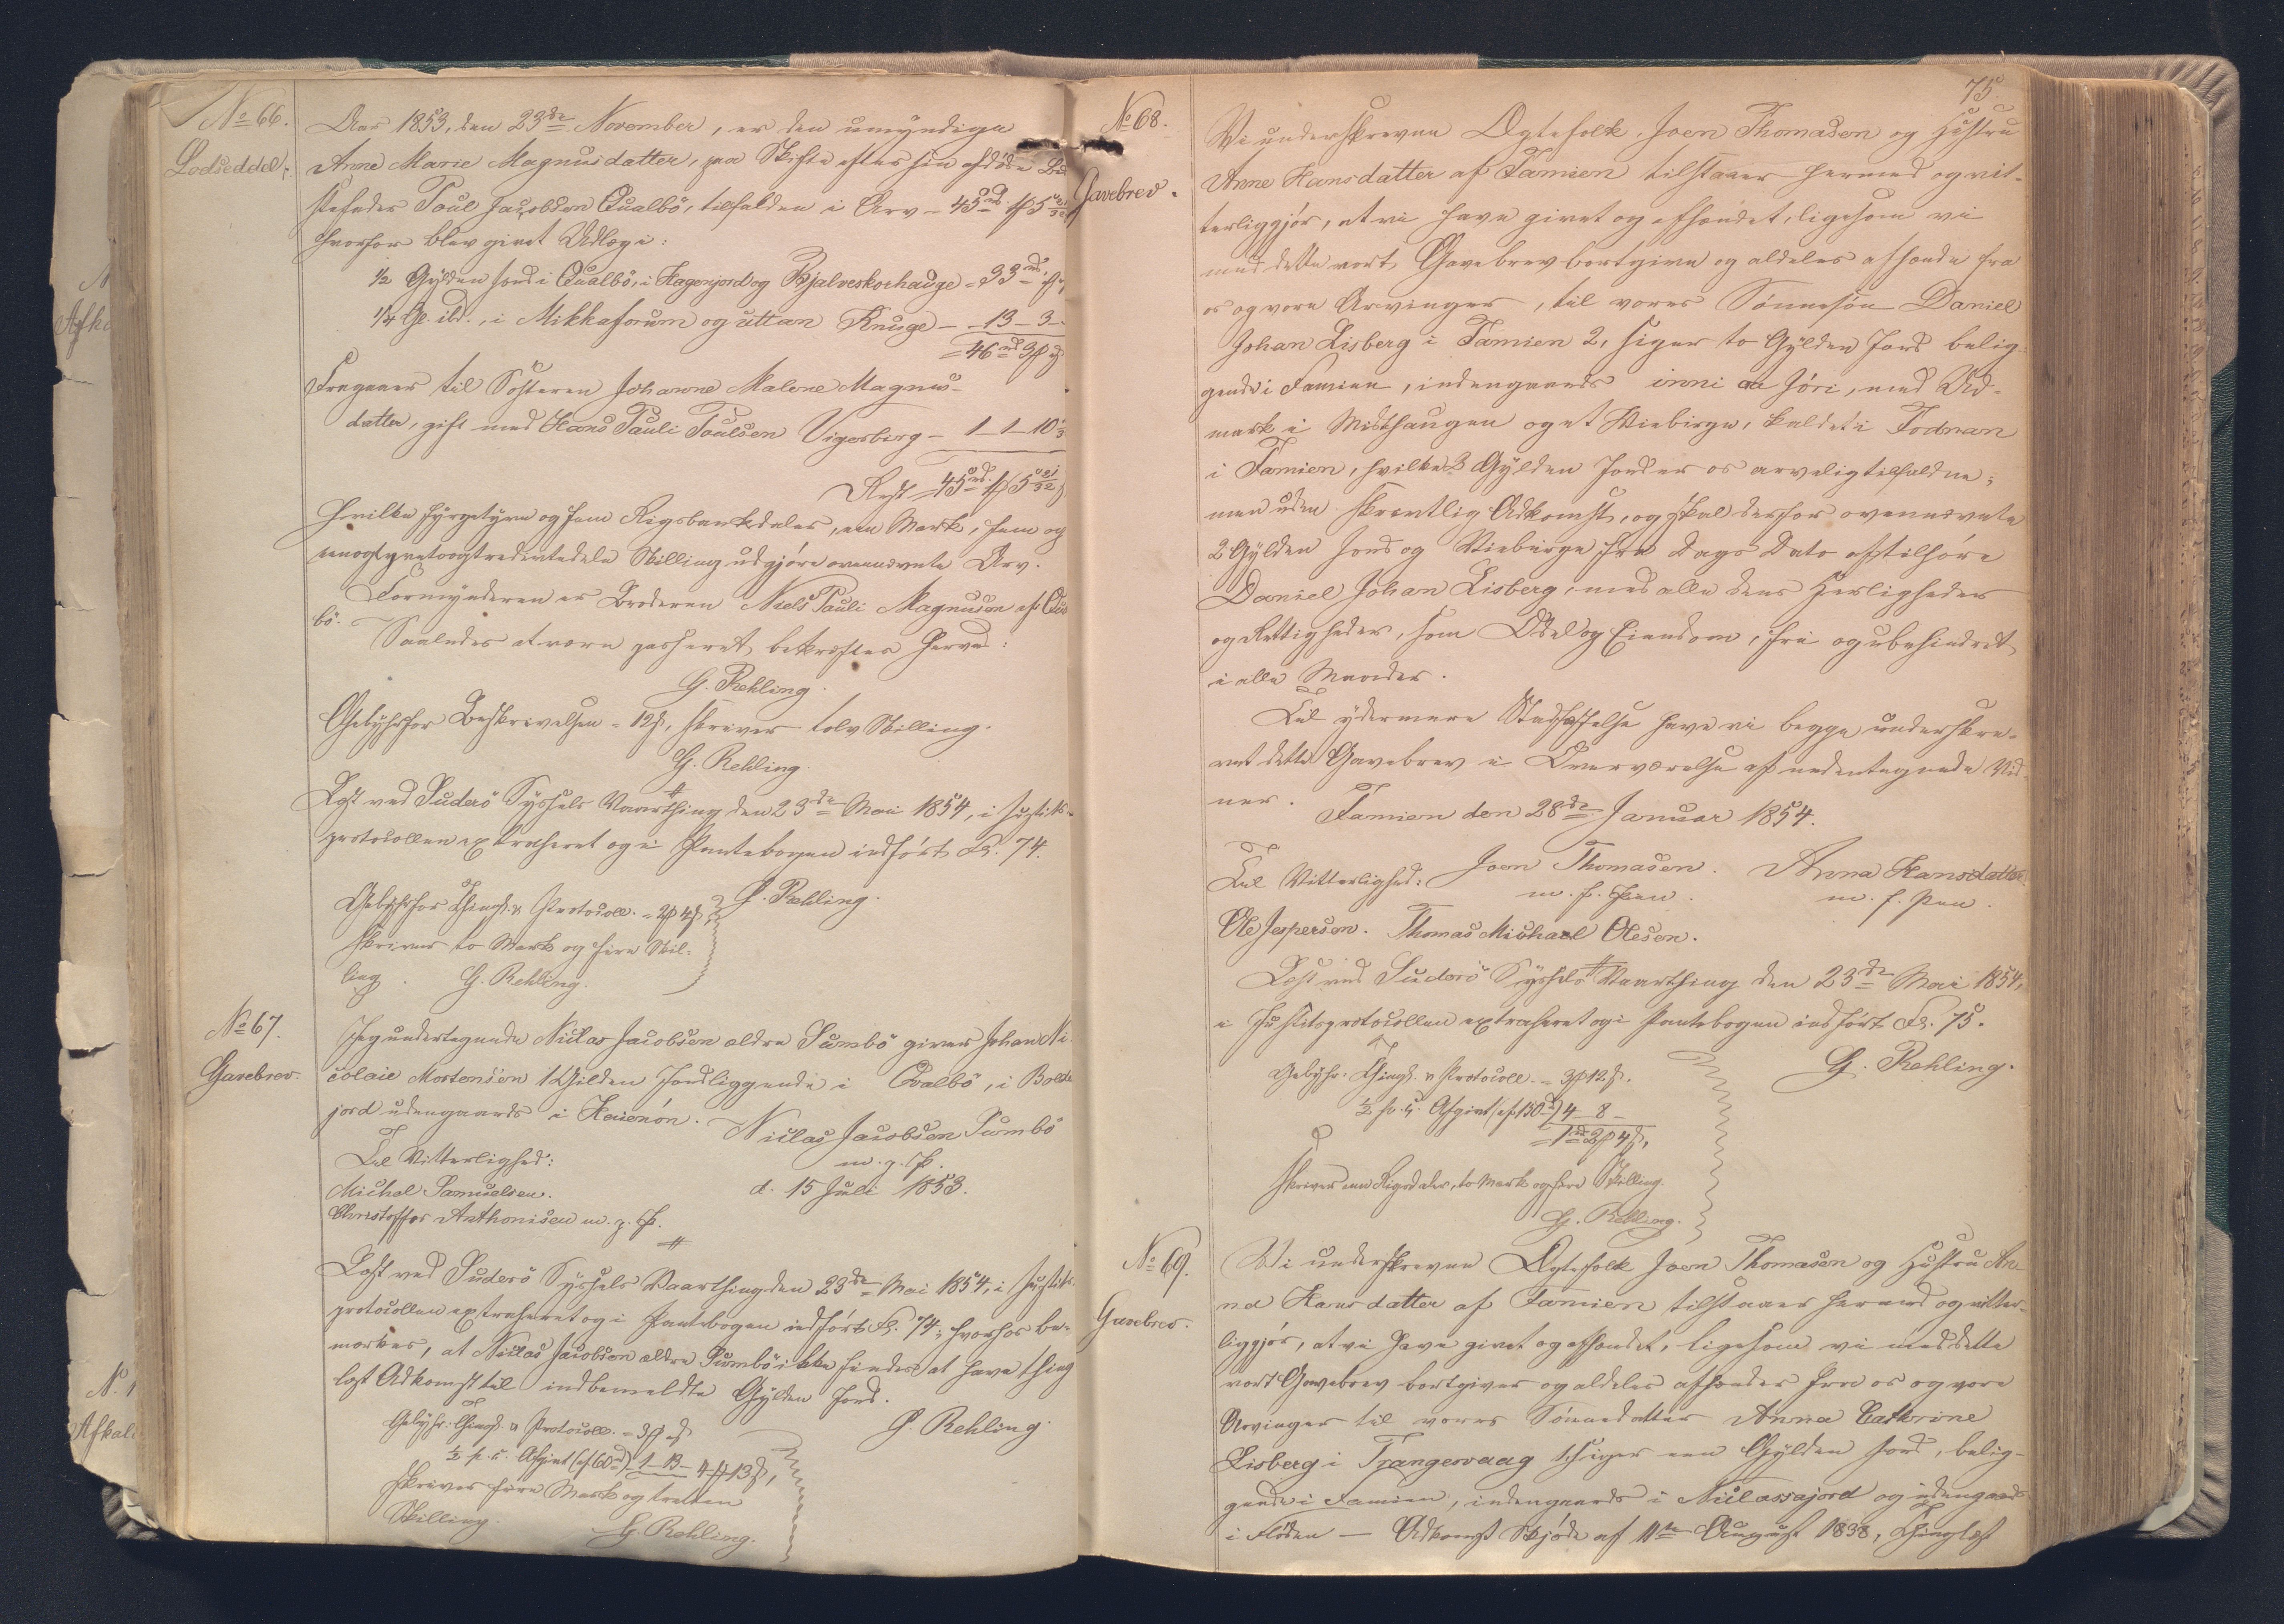 No 66.
Lodseddel.
Aar 1853, den 23de November, er den umyndige
Anne Marie Magnusdatter, paa Skifte efter sin afdøde
stefader Poul Jacobsen Qualbö, tilfalden i Arv - 45
hvorfor blev givet Udlæg i:
1/2 Gylden Jord i Qualbö, i Hagenjord og Bjalveskorhauge - 33
1/4 Gl. ibd., i Mikkaforum og uttan Knuge - 13 - 3 -
= 46
Fragaaer til Søsteren Johanne Malene Magnus-
datter, gift med Hans Pauli Poulsen Vigerberg - 1 - 1 - 10
Rest 45
Hvilke fyrgetyve og fem Rigsbankdaler, een Mark, fem og
eenogtyvetoogtredivtedele Skilling udgjøre ovennævnte Arv.
Formynderen er Broderen Niels Pauli Magnusen af
bö.
Saaledes at være passeret, bekræftes herved:
G. Rehling.
Gebyhr for Beskrivelsen = 12 s, skriver tolv Skilling.
G. Rehling.
Læst ved Suderö Syssels Vaarthing den 23de Mai 1854, i Justits-
protocollen extraheret og i Pantebogen indført Fol. 74.
G. Rehling.
Gebyhr for Thingl. & Protocoll. = 2 4 s
skriver to Mark og fire Skil-
ling. G. Rehling.
No 67.
Gavebrev.
Jeg undertegnede Niclas Jacobsen ældre Sumbö giver Johan Ni-
colaie Mortensen 1 Gilden Jord liggende i Qvalbö, i
jord udengaards i Heienön.
Niclas Jacobsen Sumbö
m. p. P.
d. 15 Juli 1853.
Til Vitterlighed:
Michel Samuelsen.
Christoffer Anthonisen m. p. P.
Læst ved Suderö Syssels Vaarthing den 23de Mai 1854, i Justits-
protocollen extraheret og i Pantebogen indført Fol. 74; hvorhos be-
mærkes, at Niclas Jacobsen ældre Sumbö ikke findes at have thing-
læst Adkomst til indbemeldte Gylden Jord.
G. Rehling
Gebyhr: Thingl. & Protocoll. = 3
1/2 p. c. Afgivt (af 60) 1 - 13 - 4 13 s,
skriver fire Mark og tretten
Skilling.
G. Rehling.
75.
No 68.
Gavebrev.
Vi underskrevne Ægtefolk, Joen Thomasen og Hustru
Anne Hansdatter af Famien tilstaaer hermed og vit-
terliggjør, at vi have givet og afhændet, ligesom vi
med dette vort Gavebrev bortgive og aldeles afhænde fra
os og vore Arvinger, til vores Sønnesøn Daniel
Johan Lisberg i Famien 2, siger to Gylden Jord belig-
gende i Famien, indengaards inni aa Jóri, med Ud-
mark i Misthaugen og et Viebirge, kaldet i Todnan
i Famien, hvilke 2 Gylden Jord er os arveligtilfaldne;
men uden skrivtlig Adkomst, og skal derfor ovennævnte
2 Gylden Jord og Viebirge fra Dags Dato aftilhøre
Daniel Johan Lisberg, med alle dens Herligheder
og Rettigheder, som Odel og Eiendom, fri og ubehindret
i alle Maader.
Til ydermere Stadfæstelse have vi begge underskre-
vet dette Gavebrev i Overværelse af nedentegnede Vid-
ner.
Famien den 28de Januar 1854.
Joen Thomasen. Anna Hansdatter
m. f. Pen. m. f. Pen.
Til Vitterlighed:
Ole Jespersen. Thomas Michael Olesen.
Læst ved Suderö Syssels Vaarthing den 23de Mai 1854,
i Justitsprotocollen extraheret og i Pantebogen indført Fol. 75.
G. Rehling.
Gebyhr: Thingl. & Protocoll. = 3 12 s.
1/2 p. c. Afgivt (af 150) 4 - 8 -
= 1 2 4 s,
skriver een Rigsdaler, to Mark og fire Skilling.
G. Rehling.
No 69.
Gavebrev.
Vi underskrevne Ægtefolk Joen Thomasen og Hustru An-
na Hansdatter af Famien tilstaaer hermed og vitter-
liggjør, at vi have givet og afhændet, ligesom vi med dette
vort Gavebrev bortgiver og aldeles afhænder fra os og vore
Arvinger til vores Sønnedatter Anna Cathrine
Lisberg i Trangesvaag 1, siger een Gylden Jord, belig-
gende i Famien, indengaards i Niclassajord og udengaards
i Flöden — Adkomst Skjøde af 11te August 1838, Thinglæst